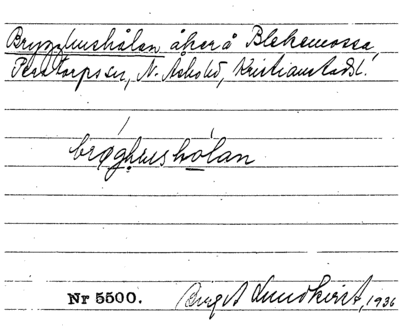 Brygghushålan åker å Blekemossa,
Perstorps sn, N. Åsbo hd, Kristianstads l.
brøghushólan
Nr 5500. Birgit Lundkvist, 1936